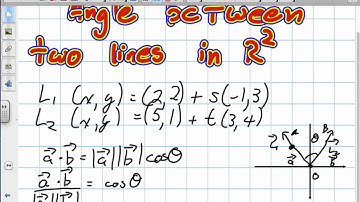 Angle between
two lines in R²
L₁ (x,y) = (2,2) + s(-1,3)
L₂ (x,y) = (5,1) + t(3,4)
a⃗·b⃗ = |a⃗||b⃗| cosθ
a⃗·b⃗ / |a⃗||b⃗| = cosθ
A B
θ
L₁ a⃗ b⃗
O